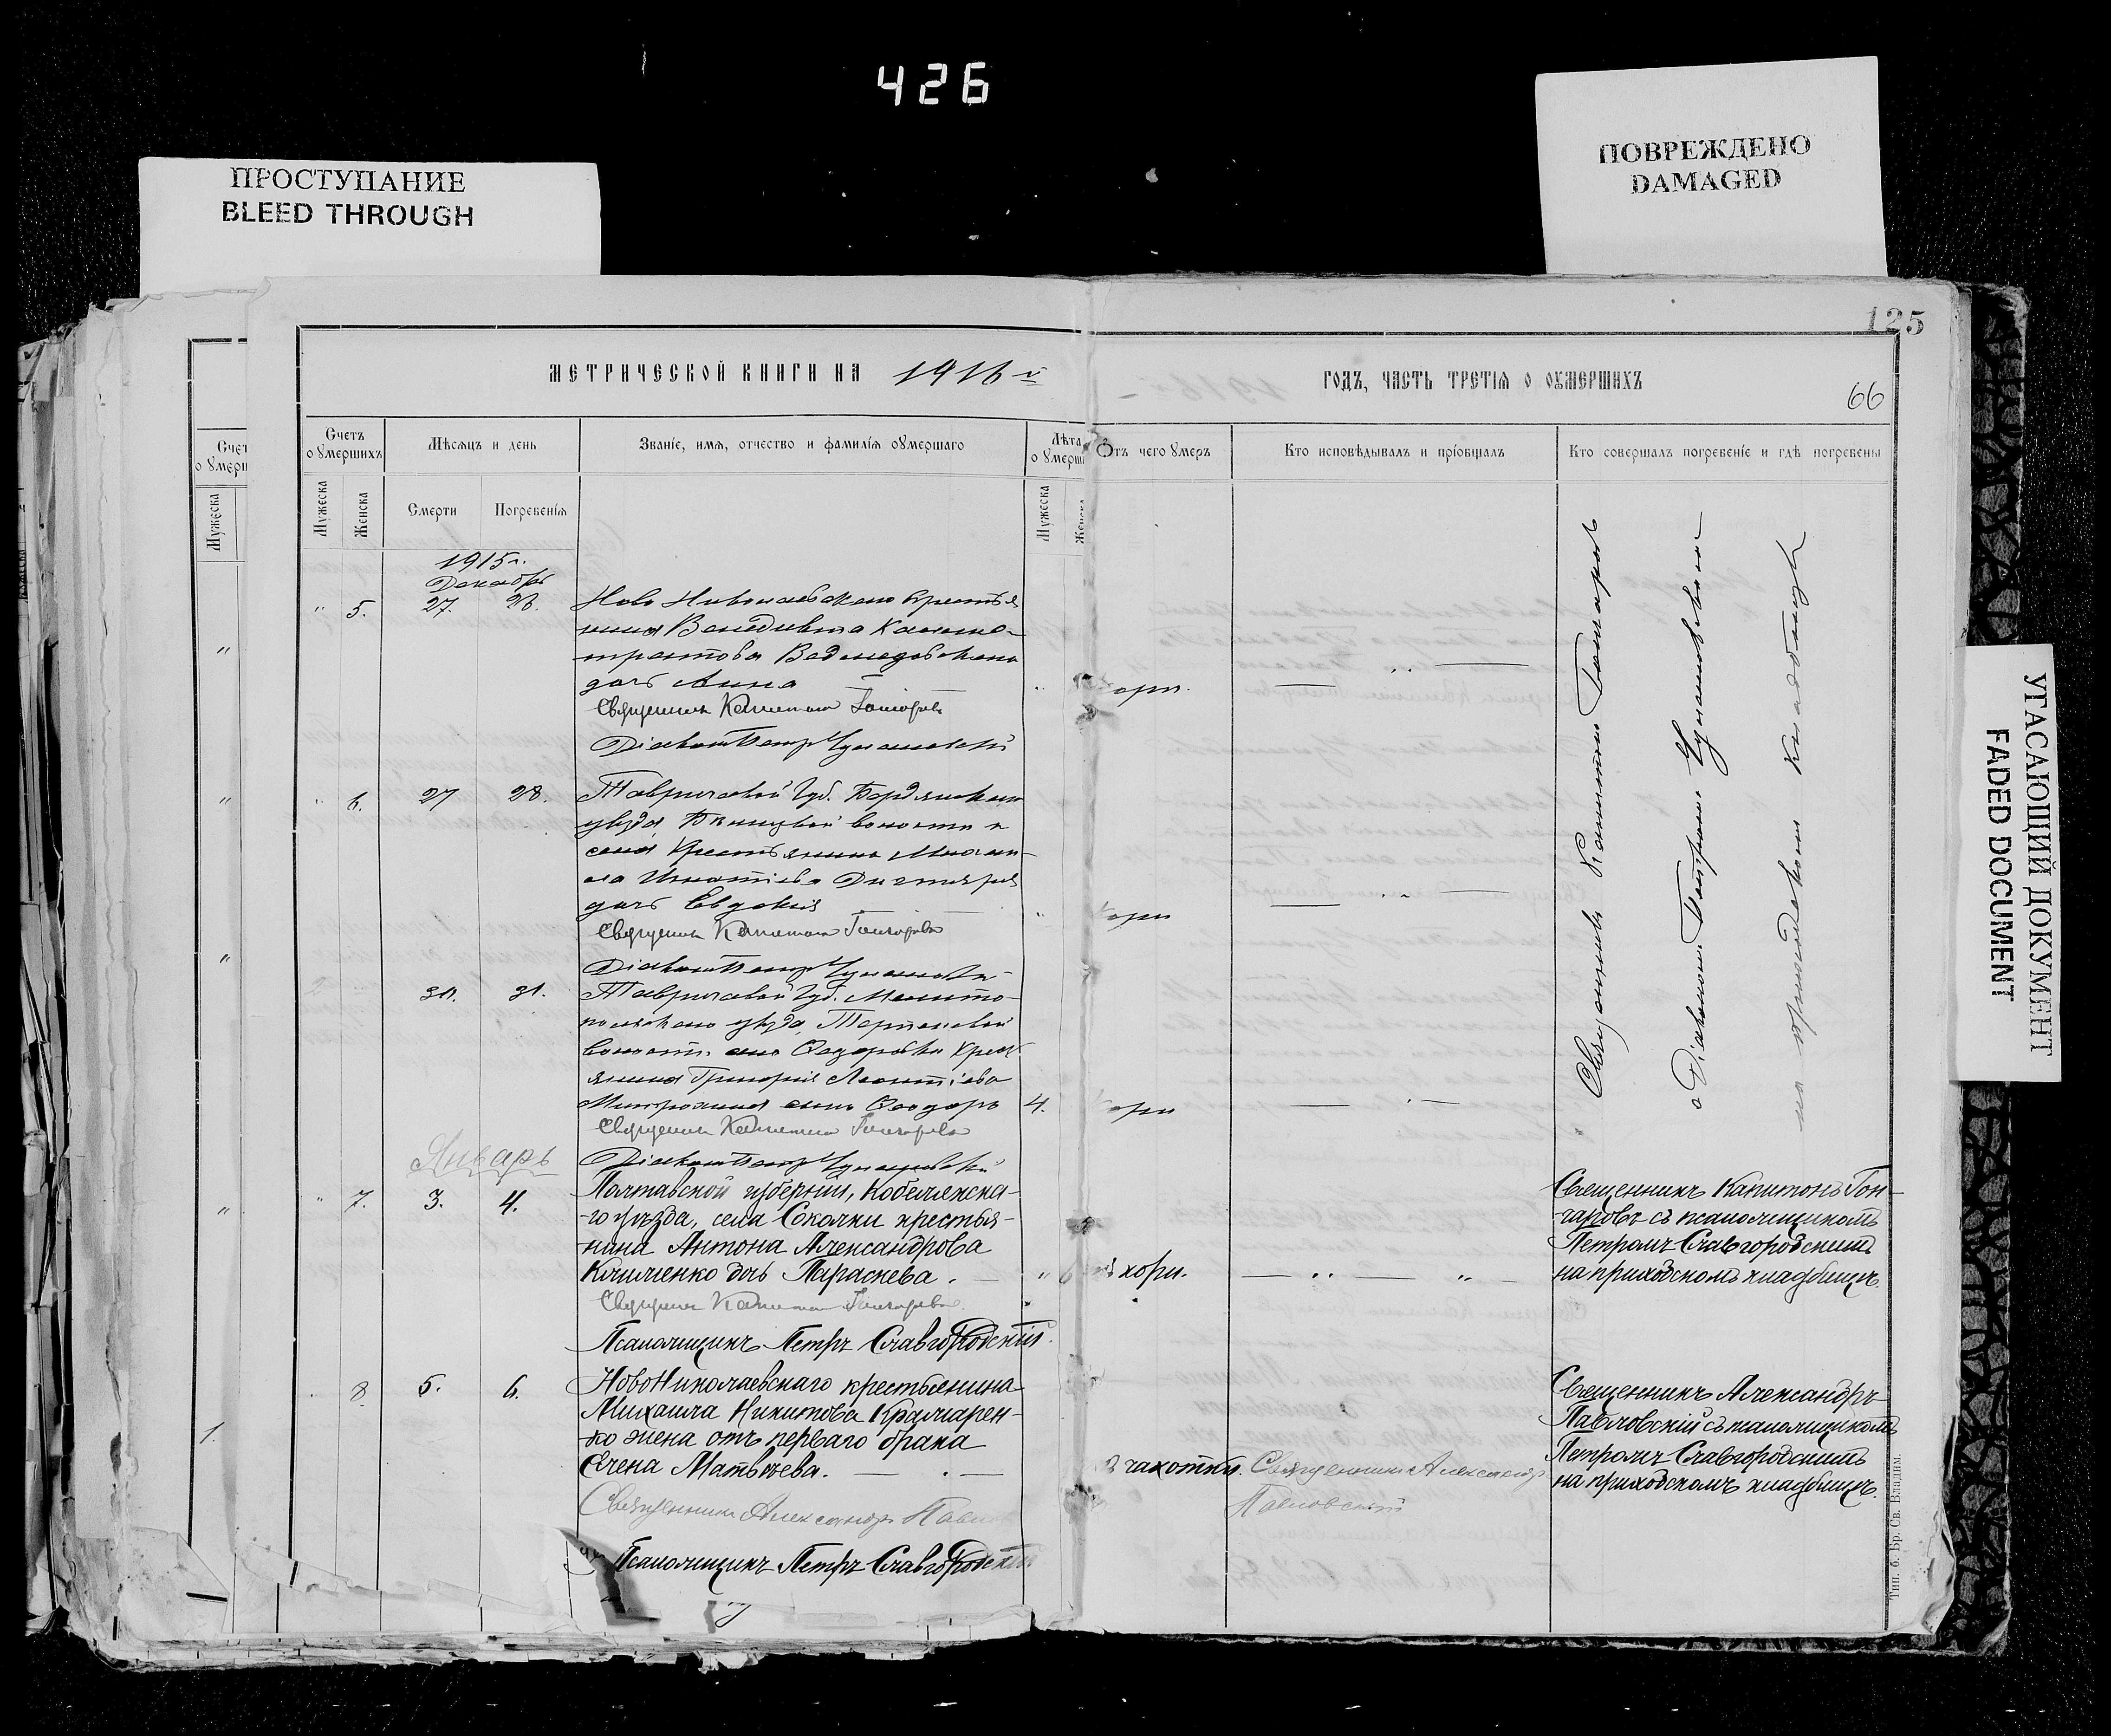 426
ПРОСТУПАНИЕ
BLEED THROUGH
ПОВРЕЖДЕНО
DAMAGED
УГАСАЮЩИЙ ДОКУМЕНТ
FADED DOCUMENT
125
МЕТРИЧЕСКОЙ КНИГИ НА 1916 й
ГОДЪ, ЧАСТЬ ТРЕТІЯ О ОУМЕРШИХЪ
66
Счетъ
о Умерш
Мужеска
Счетъ
о Умершихъ
Мѣсяцъ и день
Званіе, имя, отчество и фамилія оумершаго
Лѣта
о Умерш
Отъ чего Умеръ
Кто исповѣдывалъ и пріобщалъ
Кто совершалъ погребеніе и гдѣ погребены
Мужеска
Женска
Смерти
Погребенія
Мужеска
Женска
1915 г.
Декабрь
" 5. 27. 28. Ново Николаевскаго крестья
нина Венедикта
дочь Анна
Священникъ Капитонъ Гончаровъ
Діаконъ Петръ
" 6. 27 28. Таврической Губ. Бердянскаго
уѣзда, волости и
села крестьянина Михаи-
ла Игнатіева
дочь Евдокія
Кори
Священникъ Капитонъ Гончаровъ
Діаконъ Петръ
30. 31. Таврической Губ. Мелито-
польскаго уѣзда,
волости, села Федоровки крест
янина Григорія Леонтіева
сынъ Феодоръ 4. Кори
Священникъ Капитонъ Гончаровъ
Діаконъ Петръ
Священникъ Капитонъ Гончаровъ
съ Діакономъ Петромъ
на приходскомъ кладбищѣ
Январь
" 7. 3. 4. Полтавской губерніи, Кобелякска-
-го уѣзда, села Соколки крестья-
нина Антона Александрова
Клименко дочь Параскева. " 6 кори.
Священникъ Капитонъ Гончаровъ
Псаломщикъ Петръ Славгородскій.
Священникъ Капитонъ Гон-
чаровъ съ псаломщикомъ
Петромъ Славгородскимъ
на приходскомъ кладбищѣ.
8 5. 6. НовоНиколаевскаго крестьянина
Михаила Никитова Крамарен-
ко жена отъ перваго брака
Елена Матвѣева.
чахотки. Священникъ Александръ
Павловскій
Священникъ Александръ
Павловскій съ псаломщикомъ
Петромъ Славгородскимъ
на приходскомъ кладбищѣ.
Священникъ Александръ Павл
Псаломщикъ Петръ Славгородскій
1.
Тип. б. Бр. Св. Владим.